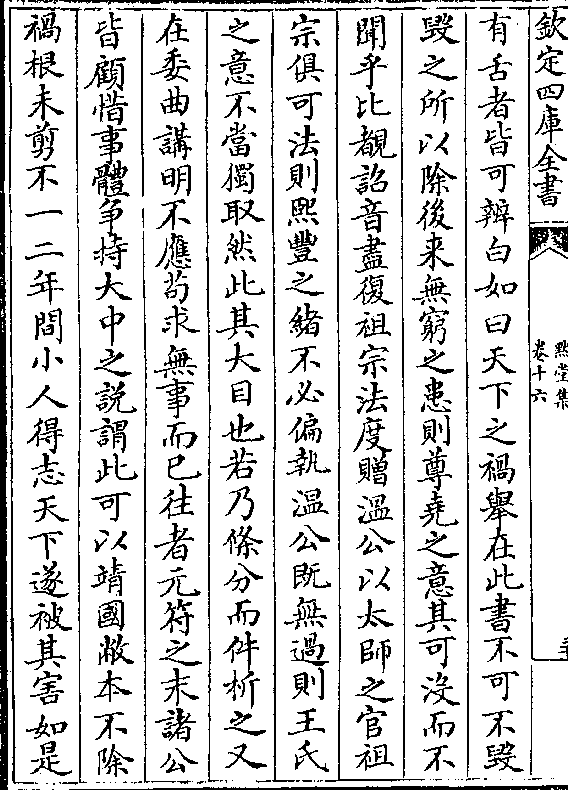 欽定四庫全書
默堂集
卷十六
有舌者皆可辨白如曰天下之禍舉在此書不可不毀
毀之所以除後来無窮之患則尊堯之意其可沒而不
聞乎比覩詔音盡復祖宗法度贈溫公以太師之官祖
宗俱可法則熈豐之緒不必偏執溫公既無過則王氏
之意不當獨取然此其大目也若乃條分而件析之又
在委曲講明不應苟求無事而已往者元符之末諸公
皆顧惜事體争持大中之説謂此可以靖國敝本不除
禍根未剪不一二年間小人得志天下遂被其害如是